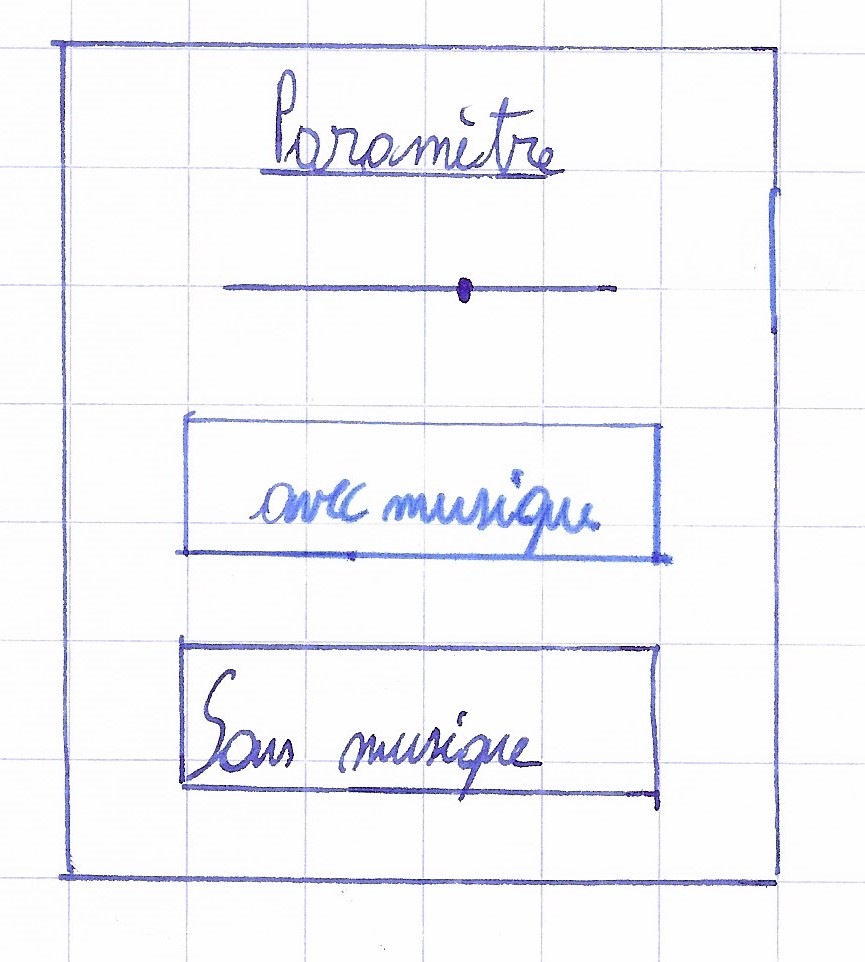 Paramètre
avec musique
Sans musique